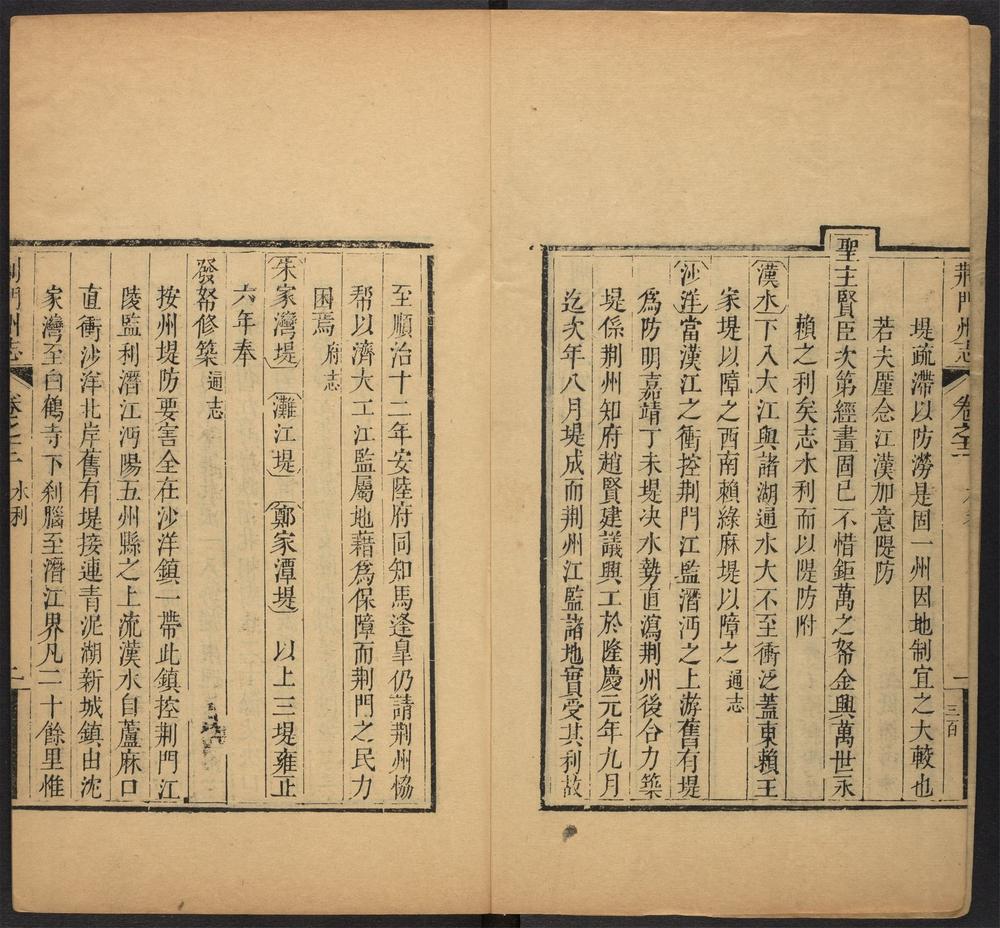 荆門州志 卷之十二 三百
堤疏滯以防澇是固一州因地制宜之大較也
若夫厪念江漢加意隄防
聖主賢臣次第經畫固已不惜鉅萬之帑金興萬世永
賴之利矣志水利而以隄防附
漢水下入大江與諸湖通水大不至衝泛蓋東賴王
家堤以障之西南賴綠麻堤以障之通志
沙洋當漢江之衝控荆門江監潛沔之上游舊有堤
爲防明嘉靖丁未堤决水勢直瀉荆州後合力築
堤係荆州知府趙賢建議興工於隆慶元年九月
迄次年八月堤成而荆州江監諸地實受其利故
至順治十二年安陸府同知馬逢臯仍請荆州恊
帮以濟大工江監屬地藉爲保障而荆門之民力
困焉府志
朱家灣堤 灘江堤 鄭家潭堤 以上三堤雍正
六年奉
發帑修築通志
按州堤防要害全在沙洋鎮一帶此鎮控荆門江
陵監利潛江沔陽五州縣之上流漢水自蘆麻口
直衝沙洋北岸舊有堤接連青泥湖新城鎮由沈
家灣至白鶴寺下刹腦至潛江界凡二十餘里惟
荆門州志 卷之十二 水利